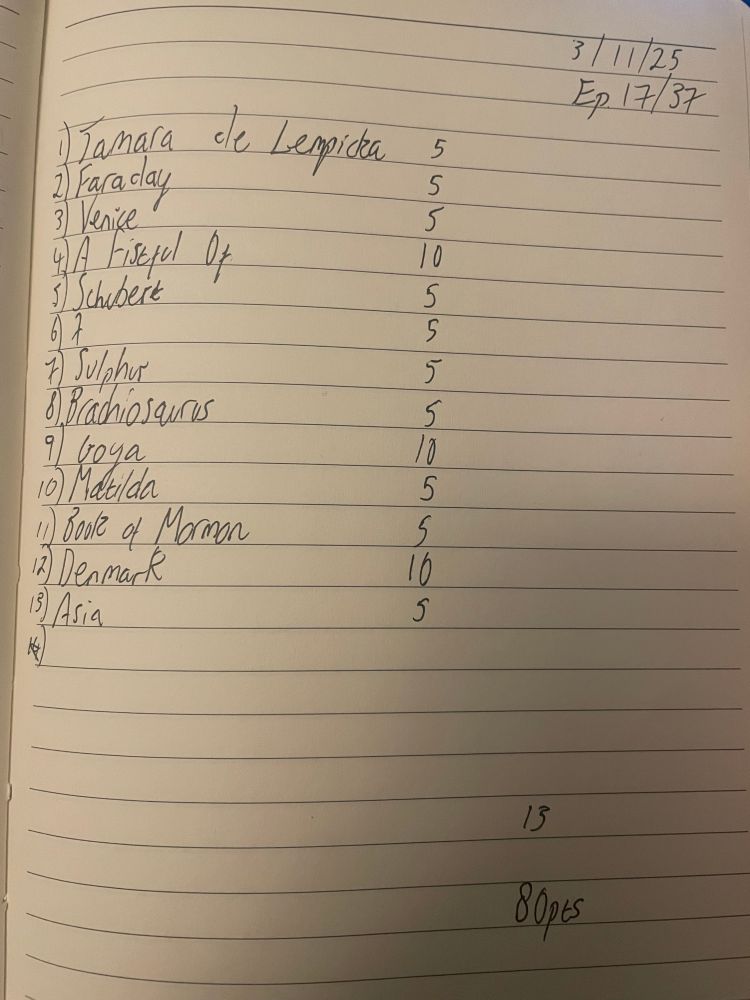 3/11/25
Ep. 17/37
1) Tamara de Lempicka 5
2) Faraday 5
3) Venice 5
4) A Fistful Of 10
5) Schubert 5
6) 7 5
7) Sulphur 5
8) Brachiosaurus 5
9) Goya 10
10) Matilda 5
11) Book of Mormon 5
12) Denmark 10
13) Asia 5
13
80pts